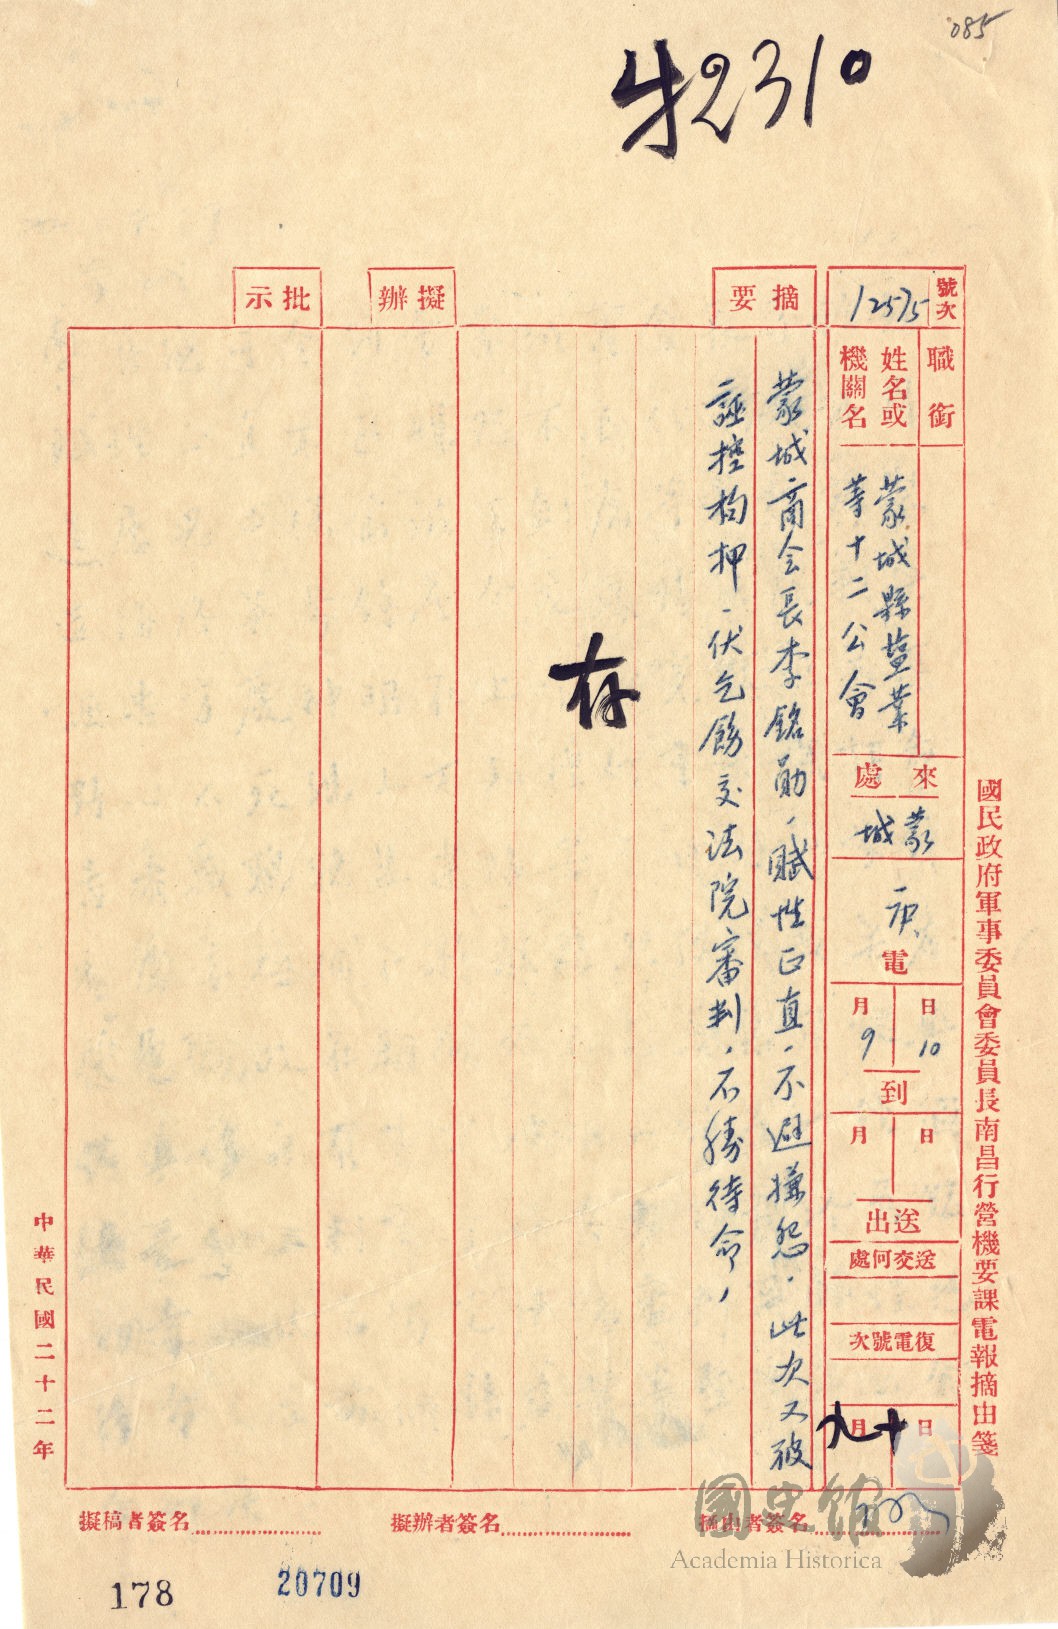 085
才2310
國民政府軍事委員會委員長南昌行營機要課電報摘由箋
號次
12575
職銜
姓名或
機關名
蒙城縣鹽業
等十二公會
來處
蒙城
電
月 日
9 10
到
月 日
送出
送交何處
復電號次
月 日
九 十
摘要
蒙城商会長李銘勛，賦性正直，不避嫌怨，此次又被
誣控拘押，伏乞飭交法院審判，不勝待命，
擬辦
存
批示
摘由者簽名
擬辦者簽名
擬稿者簽名
中華民國二十二年
178
20709
國史館
Academia Historica